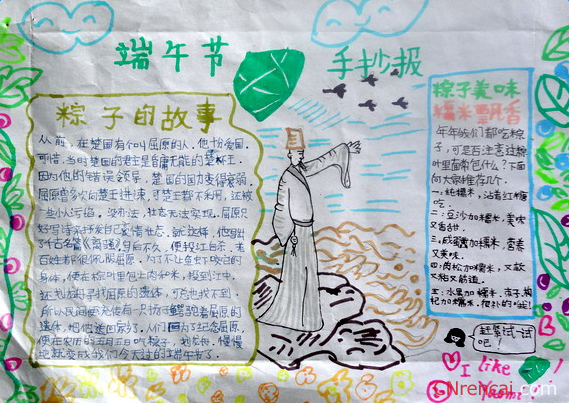 端午节 手抄报
粽子的故事
从前，在楚国有个叫屈原的人。他怕爱国。
可惜，当时楚国的君主是昏庸无能的楚怀王。
因为他的错误领导，楚国的国力变得衰弱。
屈原曾多次向楚王进谏，可楚王都不利用，还被
一些小人污陷，没办法，壮志无法实现。屈原只
好写诗来抒发自己爱情壮志，就这样，他写出
了千古名篇《离骚》身后不久，便投江自杀。老
百姓都很佩服屈原，为了不让鱼虾下咬他的
身体，便在粽叶里包上肉和米，投到江中，
还划龙舟寻找屈原的遗体，竟也找不到。
所以民间便流传有一只海子驾驼着屈原的
遗体，把他送回家了。人们为了纪念屈原，
便在农历的五月五日吃粽子，划龙舟，慢慢
地就变成我们今天过的端午节了。
粽子美味
糯米飘香
年年我们都吃粽
子，可是否注意过粽
叶里面有包什么？下面
向大家推荐几个。
一：纯糯米，沾着红糖
吃。
二：豆沙加糯米，美味
又香甜。
三：咸蛋加糯米，营养
又美味。
四：肉松加糯米，又软
又粘又筋道。
五：水果加糯米，
杞加糯米，很补的哦！
赶紧试一试
吧！
I like
Yami
Nrencai.com